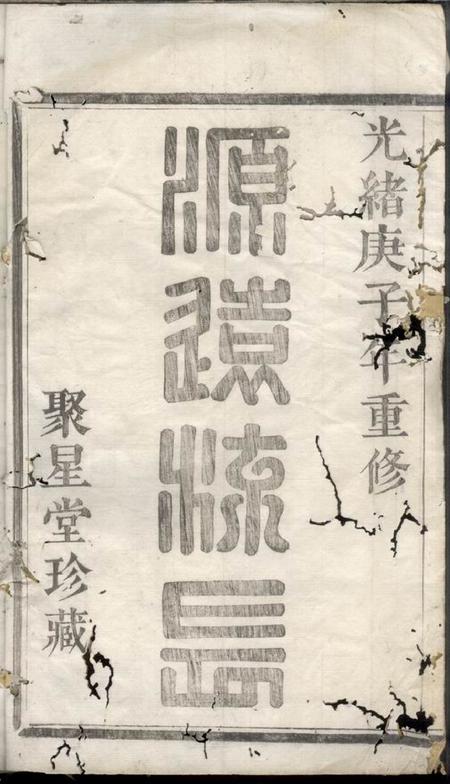 光緒庚子年重修
源遠流長
聚星堂珍藏